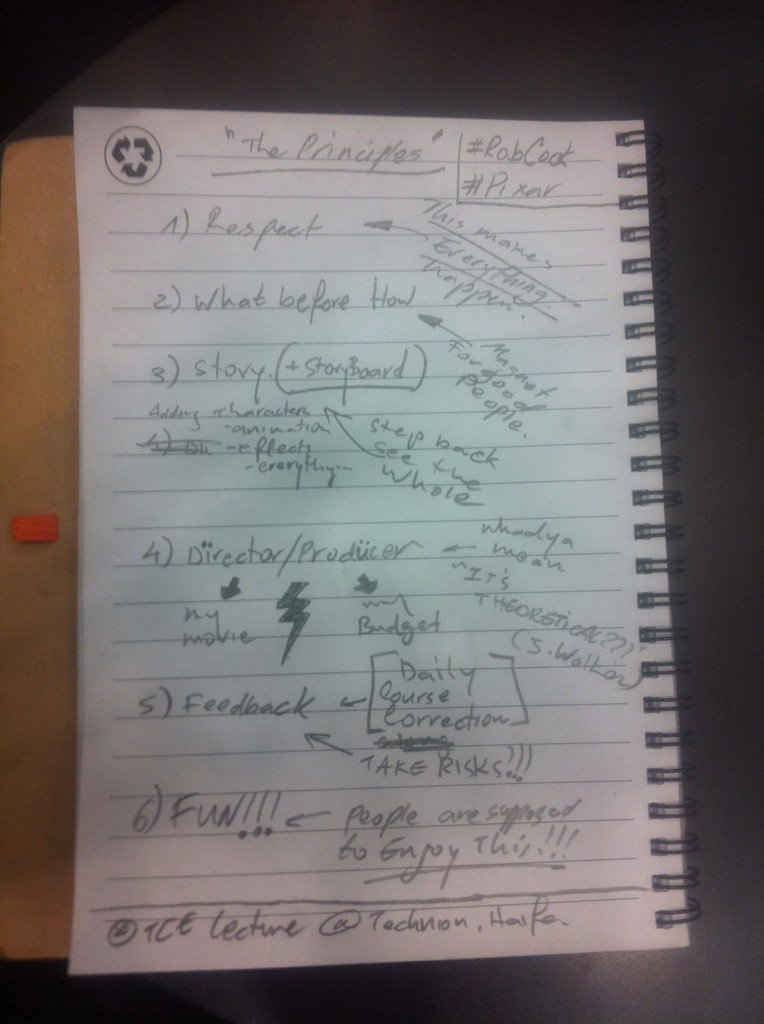 "The Principles"
#RobCook
#Pixar
1) Respect
This makes
Everything
happen.
2) What before How
Magnet
For good
people.
3) Story. (+ StoryBoard)
Adding characters
-animation
-effects
-everythg...
step back
see the
Whole
4) Director/Producer
whadya
mean
"It's
THEORETICAL???"
(J. Walker)
my
movie
my
Budget
5) Feedback
[Daily
Course
Correction]
TAKE RISKS!!!
6) FUN!!!
people are supposed
to Enjoy This!!!
TCE Lecture @ Technion, Haifa.